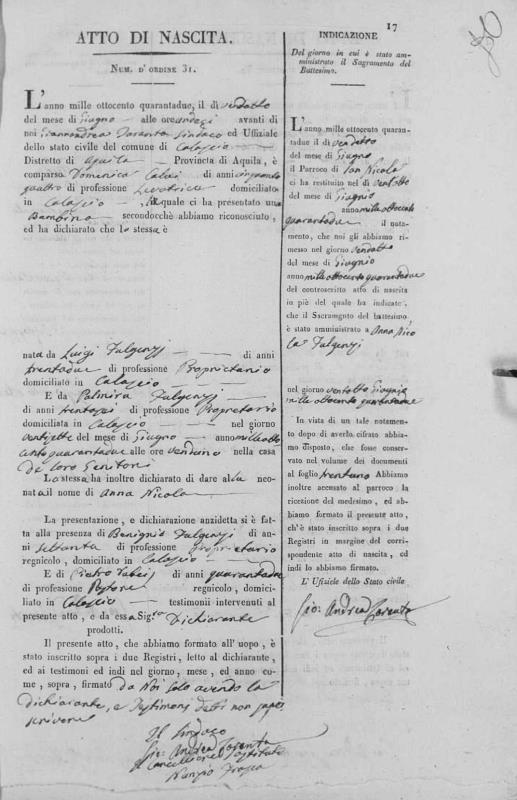 17
30
ATTO DI NASCITA.
NUM. D' ORDINE 31.
L'anno mille ottocento quarantadue, il dì ventotto
del mese di Giugno alle ore undeci avanti di
noi Giannandrea Taranta Sindaco ed Uffiziale
dello stato civile del comune di Calascio
Distretto di Aquila Provincia di Aquila, è
comparsa Domenica di anni cinquanta
quattro di professione Levatrice domiciliata
in Calascio, la quale ci ha presentato una
Bambina secondocchè abbiamo riconosciuto,
ed ha dichiarato che la stessa è
nata da Luigi Fulgenzj di anni
trentadue di professione Proprietario
domiciliato in Calascio
E da Palmira Fulgenzj
di anni di professione Proprietario
domiciliata in Calascio nel giorno
ventisette del mese di Giugno anno mille otto
cento quarantadue alle ore ventuno nella casa
de loro Genitori
La stessa ha inoltre dichiarato di dare alla neo-
nata il nome di Anna Nicola
La presentazione, e dichiarazione anzidetta si è fat-
ta alla presenza di Benignio Fulgenzj di an-
ni settanta di professione Proprietario
regnicolo, domiciliato in Calascio
E di Pietro di anni quarantadue
di professione Pastore regnicolo, domici-
liato in Calascio testimonii intervenuti al
presente atto, e da essa Sig.ra Dichiarante
prodotti.
Il presente atto, che abbiamo formato all' uopo, è
stato inscritto sopra i due Registri, letto al dichiarante,
ed ai testimoni ed indi nel giorno, mese, ed anno co-
me, sopra, firmato da Noi solo avendo la
dichiarante, e Testimonj detto non saper
scrivere
Il Sindaco
Gio: Andrea Taranta
Il Cancelliere Sostituto
Nunzio
INDICAZIONE
Del giorno in cui è stato am-
ministrato il Sagramento del
Battesimo.
L'anno mille ottocento quaran-
tadue il dì ventotto
del mese di Giugno
il Parroco di San Nicola
ci ha restituito nel dì ventotto
del mese di Giugnio
anno mille ottocento
quarantadue il nota-
mento, che noi gli abbiamo ri-
messo nel giorno ventotto
del mese di Giugnio
anno mille ottocento quarantadue
del controscritto atto di nascita
in piè del quale ha indicato,
che il Sacramento del battesimo
è stato amministrato a Anna Nico
la Fulgenzj
nel giorno ventotto Giugnio
mille ottocento quarantadue
In vista di un tale notamento
dopo di averlo cifrato abbiamo
disposto, che fosse conser-
vato nel volume dei documenti
al foglio trentuno Abbiamo
inoltre accusato al parroco la
ricezione del medesimo, ed ab-
biamo formato il presente atto,
ch'è stato inscritto sopra i due
Registri in margine del corri-
spondente atto di nascita, ed
indi lo abbiamo firmato.
L' Ufiziale dello Stato civile
Gio: Andrea Taranta